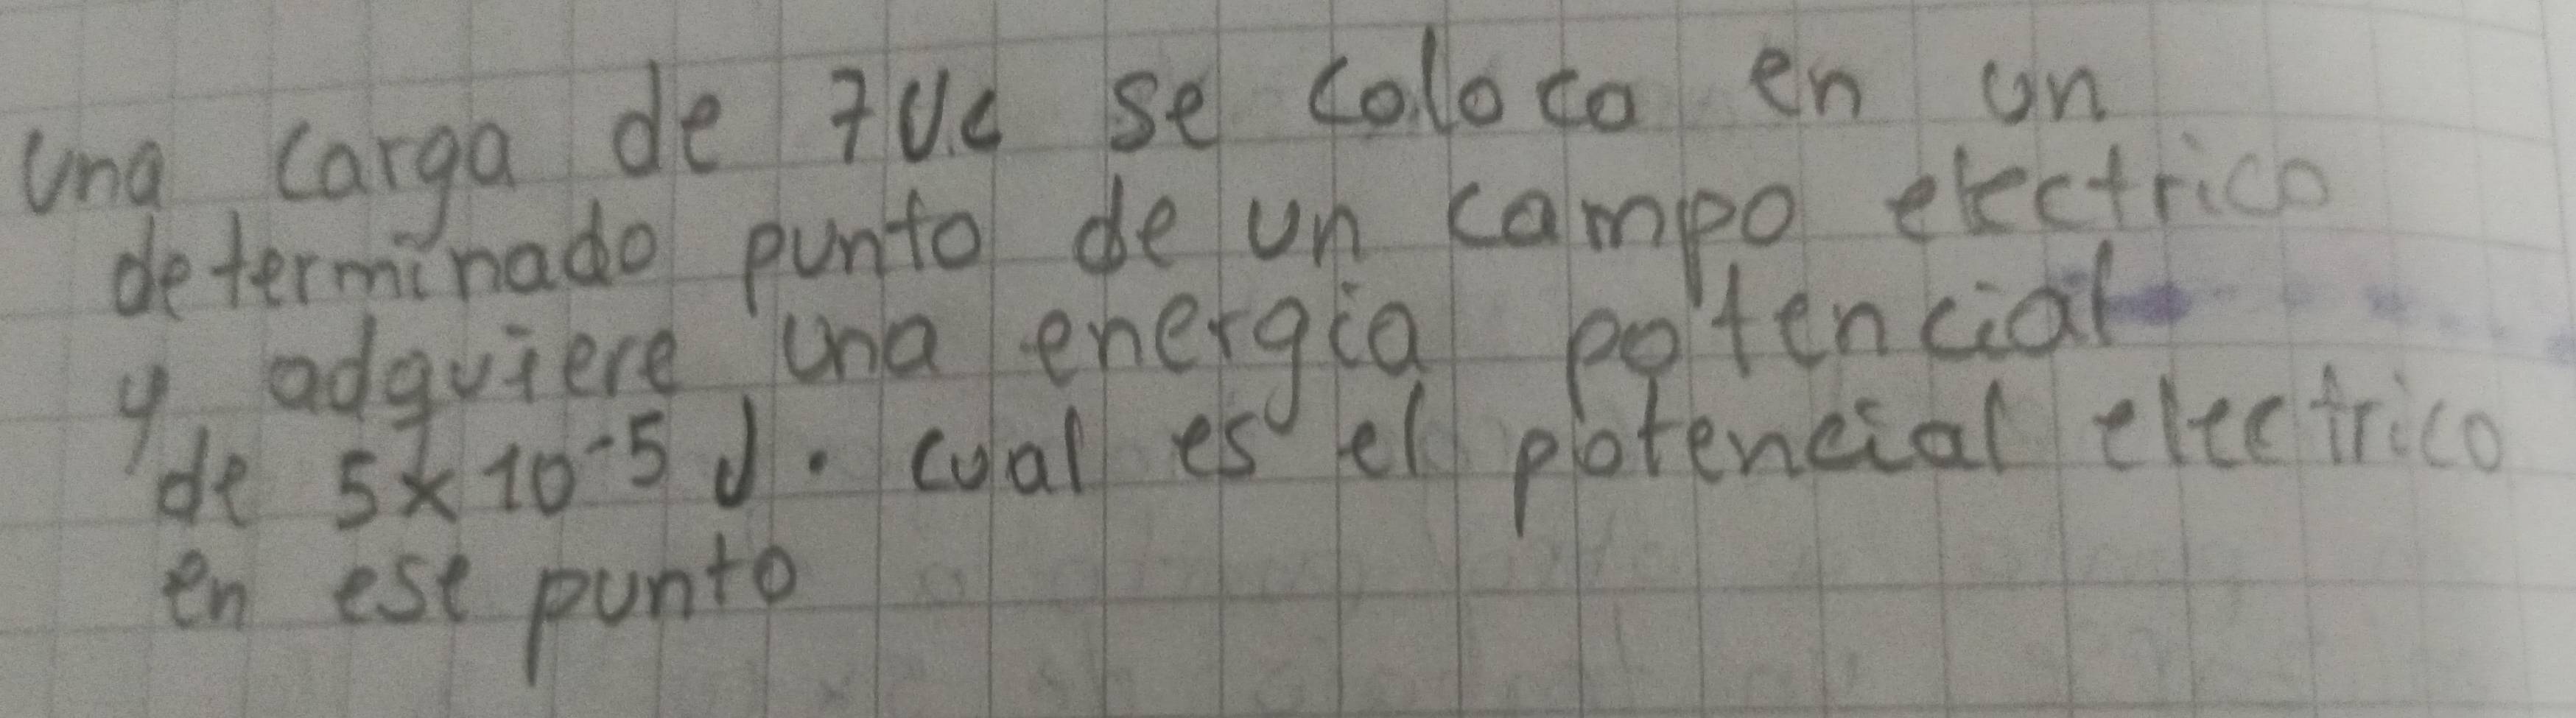 una carga de 7U.c se coloca en un
determinado punto de un campo electrico
y adquiere una energia potencial
de 5x10⁻⁵ J. cual es el potencial electrico
en ese punto